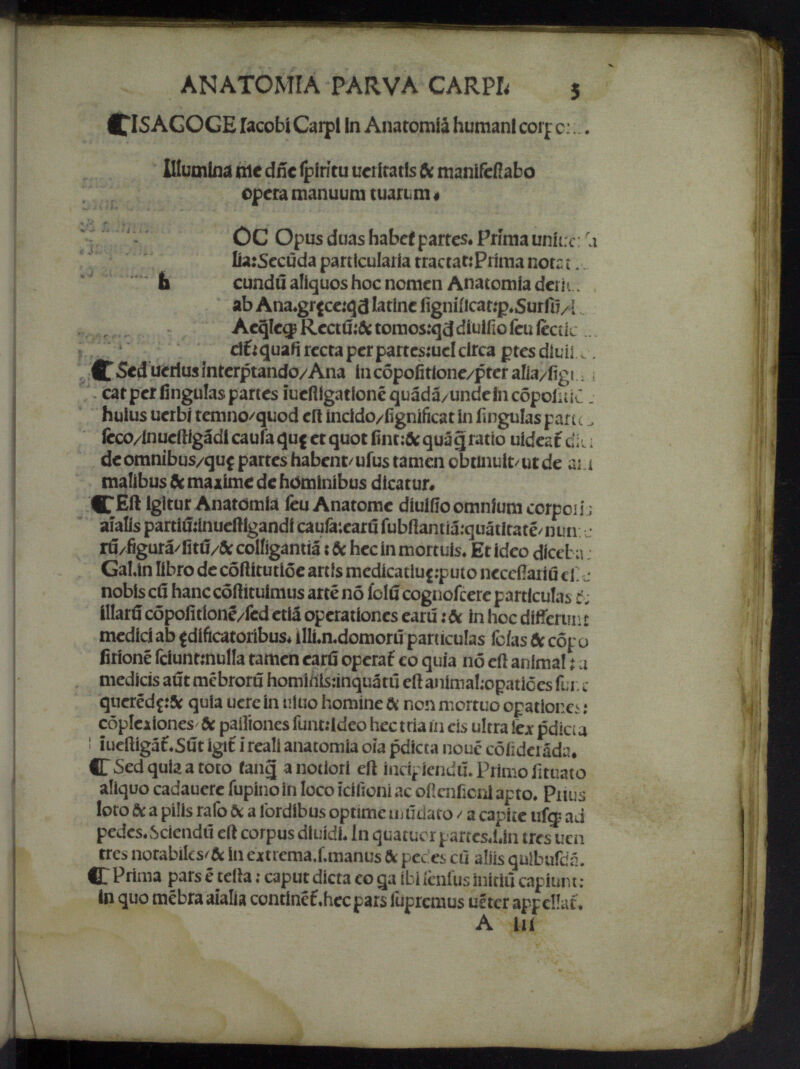 ANATOMIA PARVA CARPI. 5
ISAGOGE Iacobi Carpi in Anatomiā humani
Illumina me dñe ſpiritu ueritatis & manifeſtabo
opera manuum tuarum.
OC Opus duas habet partes. Prima
lia:Secūda particularia tractat:Prima
h cundū aliquos hoc nomen Anatomia
ab Ana.gręce:qđ latine ſignificat:p.Surſū/
Aeq̄leqꝫ Rectū:& tomos:qđ diuiſio ſeu
cit̄:quaſi recta per partes:uel circa ptes
Sed uerius interp̄tando/Ana in cōpoſitione/p̄ter alia/
cat per ſingulas partes īueſtigationē quādā/unde in
huius uerbi temno/quod eſt incido/ſignificat in ſingulas
ſeco/inueſtigādi cauſa quę et quot ſint:& quāq̄ ratio uideat̄
de omnibus/quę partes habent/uſus tamen obtinuit/ut de
malibus & maxime de hominibus dicatur.
Eſt igitur Anatomia ſeu Anatome diuiſio omnium
aīalis partiū:inueſtigandi cauſa:earū ſubſtantiā:quātitatē/
rū/figurā/ſitū/& colligantiā : & hec in mortuis. Et ideo
Gal.in libro de cōſtitutiōe artis medicatiuę:puto neceſſariū
nobis cū hanc cōſtituimus artē nō ſolū cognoſcere particulas
illarū cōpoſitionē/ſed etiā operationes earū : & in hoc differunt
medici ab ędificatoribus. illi.n.domorū particulas ſolas & cōpo
ſitionē ſciunt:nulla tamen earū operat̄ eo quia nō eſt animal : a
medicis aūt mēbrorū hominis:inquātū eſt animal:opatiōes
querēdę:& quia uere in uiuo homine & non mortuo opationes:
cōplexiones/& paſſiones ſunt:Ideo hec tria in eis ultra ſex p̄dicta
īueſtigāt̄.Sūt igit̄ ī reali anatomia oīa p̄dicta nouē cōſiderāda.
Sed quia a toto tanq̄ a notiori eſt incipiendū. Primo ſituato
aliquo cadauere ſupino in loco īciſioni ac oſtenſioni apto. Prius
loto & a pilis raſo & a ſordibus optime mūdato / a capite uſqꝫ ad
pedes. Sciendū eſt corpus diuidi. In quatuor partes.ſ.in tres uen
tres notabiles/& in extrema.ſ.manus & pedes cū aliis quibuſdā.
Prima pars ē teſta : caput dicta eo qa ibi ſenſus initiū capiunt:
in quo mēbra aīalia continēt̄.hec pars ſupremus uēter appellat̄.
A iii